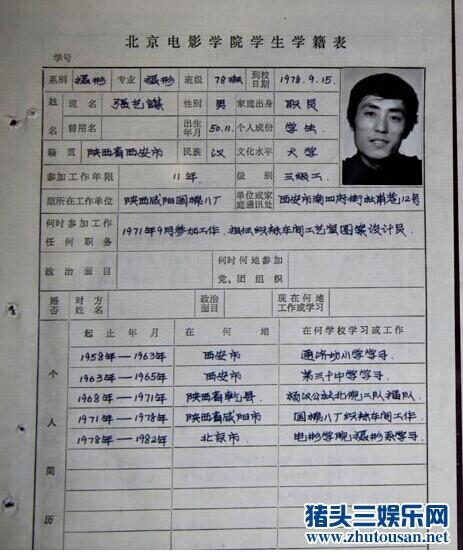 北京电影学院学生学籍表
学号
系别 摄影 专业 摄影 班级 78级 到校日期 1978.9.15.
姓名 现名 张艺谋 性别 男 家庭出身 职员
曾用名 出生年月 50.11. 个人成份 学生
籍贯 陕西省西安市 民族 汉 文化水平 大学
参加工作年限 11年 级别 三级工
原所在工作单位 陕西咸阳国棉八厂 单位或家庭通讯处 西安市南四府街 12号
何时参加工作任何职务 1971年9月参加工作.担任织袜车间工艺室图案设计员.
政治面目 何时何地参加党、团组织
婚否 对方姓名 政治面目 现在何地工作或学习
个人简历
起止年月 在何地 在何学校学习或工作
1958年—1963年 西安市 通济坊小学学习.
1963年—1965年 西安市 第三十中学学习.
1968年—1971年 陕西省乾县. 杨汉公社北倪二队插队.
1971年—1978年 陕西省咸阳市 国棉八厂织袜车间工作.
1978年—1982年 北京市 电影学院摄影系学习.
猪头三娱乐网
www.zhutousan.net